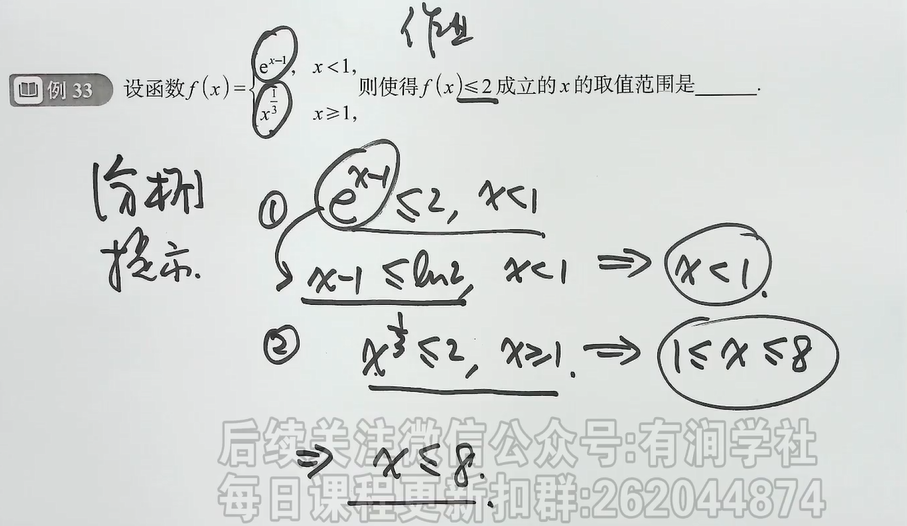 作业
例 33 设函数 f(x)={e^{x-1}, x<1, x^{1/3}, x≥1, 则使得 f(x)≤2 成立的 x 的取值范围是______.
[分析] 提示.
① e^{x-1} ≤2, x<1
x-1 ≤ ln2, x<1 ⇒ x<1.
② x^{1/3} ≤2, x≥1. ⇒ 1≤x≤8
⇒ x≤8.
后续关注微信公众号:有润学社
每日课程更新扣群:262044874